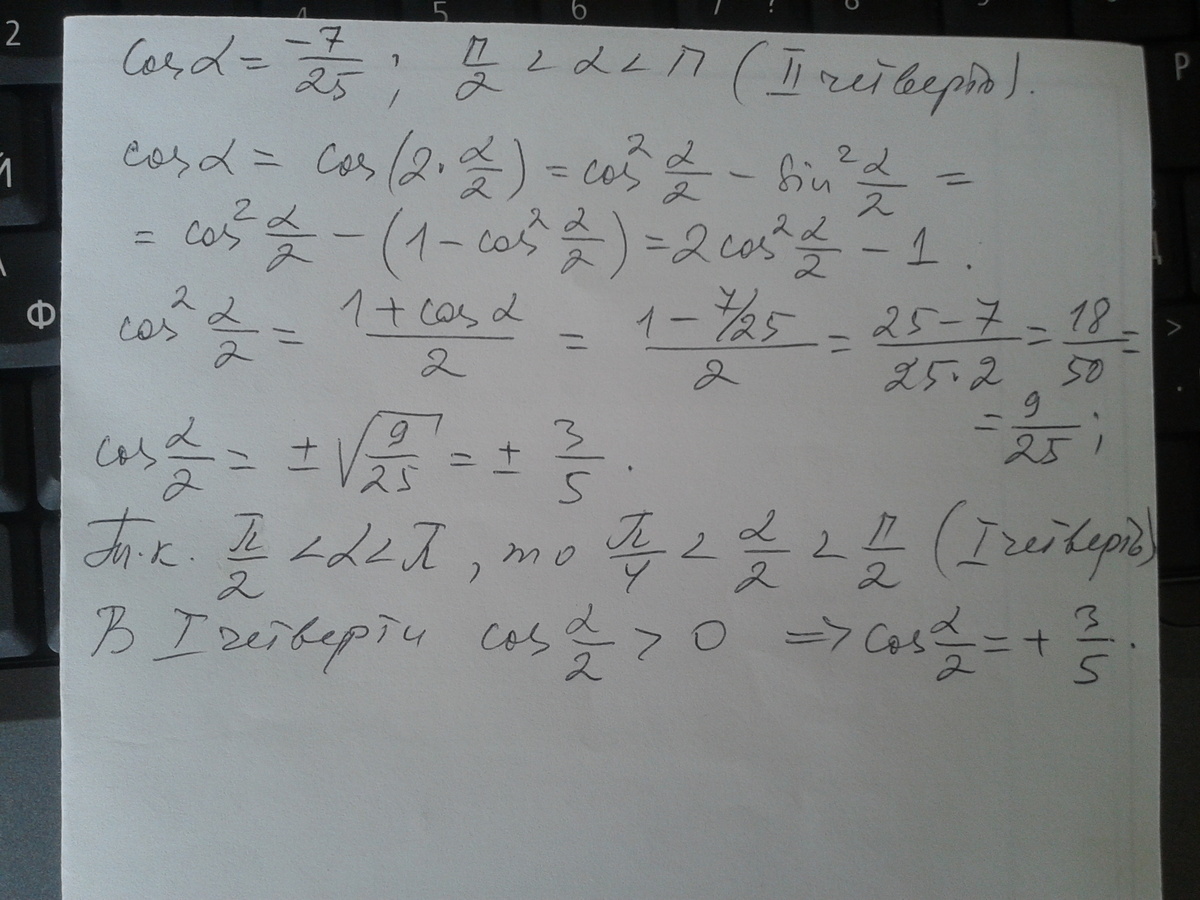 cos α = -7/25 ; π/2 < α < π ( II четверть).
cos α = cos(2·α/2) = cos² α/2 − sin² α/2 =
= cos² α/2 − (1 − cos² α/2) = 2cos² α/2 − 1 .
cos² α/2 = (1 + cos α)/2 = (1 − 7/25)/2 = (25 − 7)/(25·2) = 18/50 =
= 9/25 ;
cos α/2 = ± √(9/25) = ± 3/5 .
Т.к. π/2 < α < π , то π/4 < α/2 < π/2 ( I четверть)
В I четверти cos α/2 > 0 => cos α/2 = + 3/5 .
2 4 5 6 7 ? 8 9
Й
Ф
Р
>
.